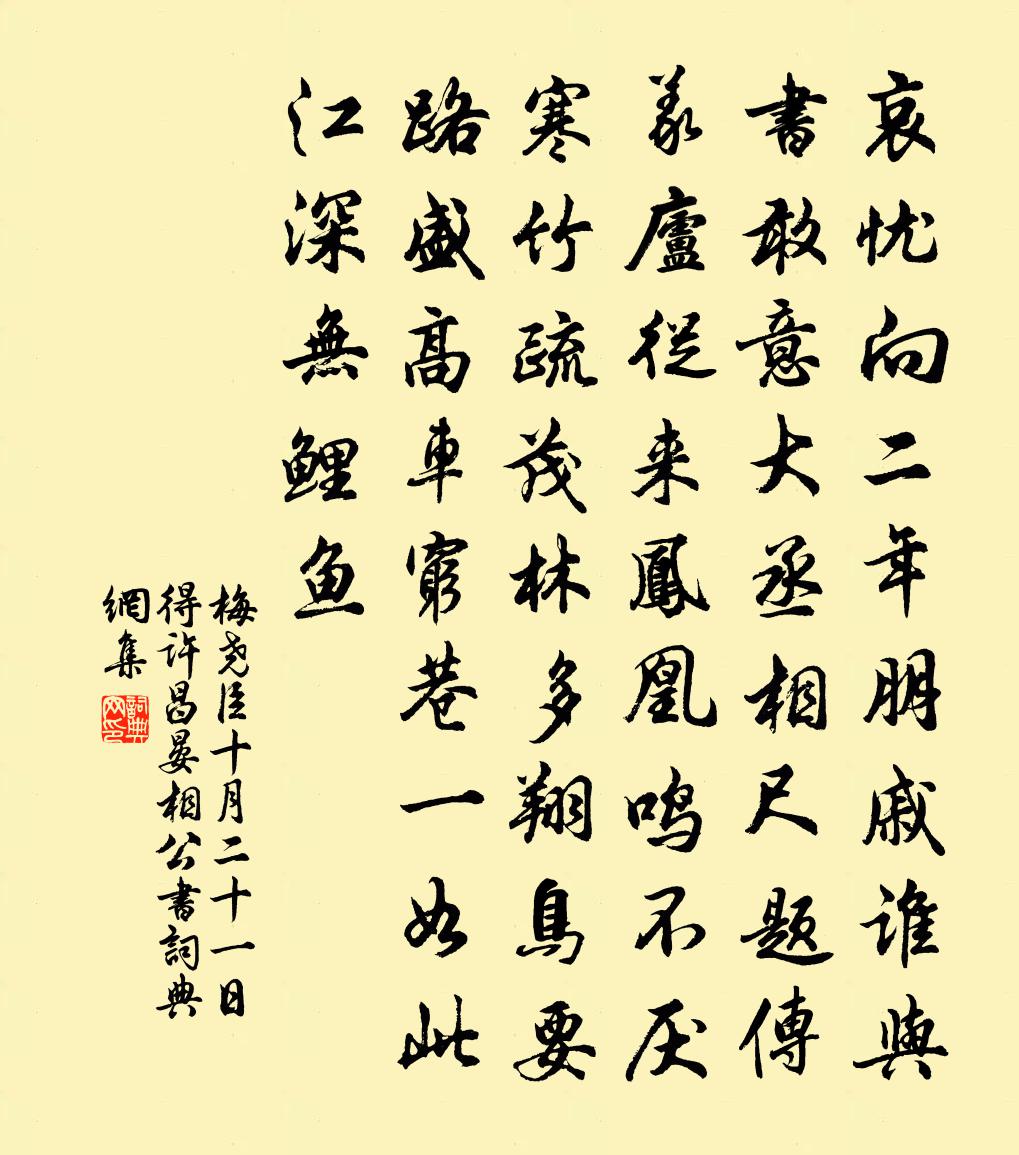 哀忧向二年朋戚谁與
書敢意大丞相尺题傳
義廬從来鳳凰鸣不厌
寒竹疏茂林多翔鳥要
路盛高車窮巷一如此
江深無鯉鱼
梅尧臣十月二十一日
得许昌晏相公書詞典
網集
詞典
网印